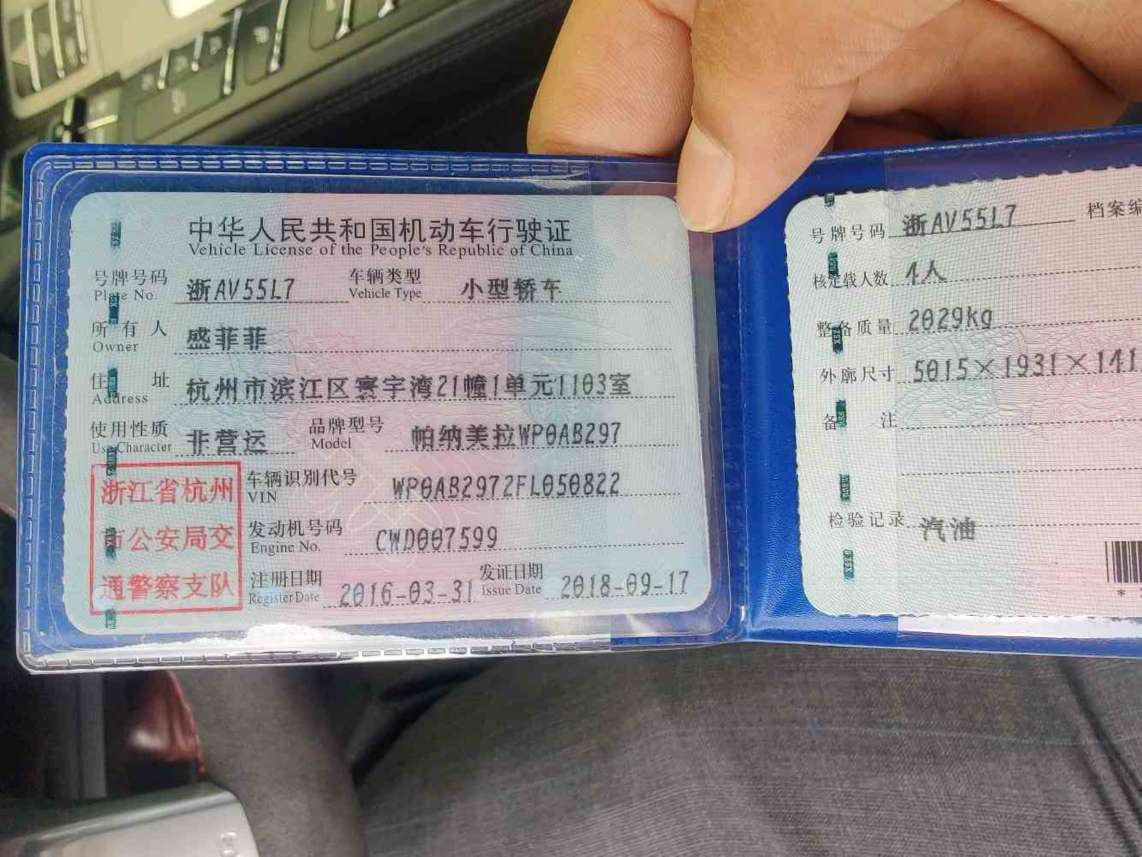 中华人民共和国机动车行驶证
Vehicle License of the People's Republic of China
号牌号码 浙AV55L7 车辆类型 小型轿车
Plate No. Vehicle Type
所有人 盛菲菲
Owner
住址 杭州市滨江区寰宇湾21幢1单元1103室
Address
使用性质 非营运 品牌型号 帕纳美拉WP0AB297
Use Character Model
浙江省杭州
市公安局交
通警察支队
车辆识别代号 WP0AB2972FL050822
VIN
发动机号码 CWD007599
Engine No.
注册日期 2016-03-31 发证日期 2018-09-17
Register Date Issue Date
号牌号码 浙AV55L7 档案编
核定载人数 4人
整备质量 2029kg
外廓尺寸 5015×1931×141
备注
检验记录 汽油
*